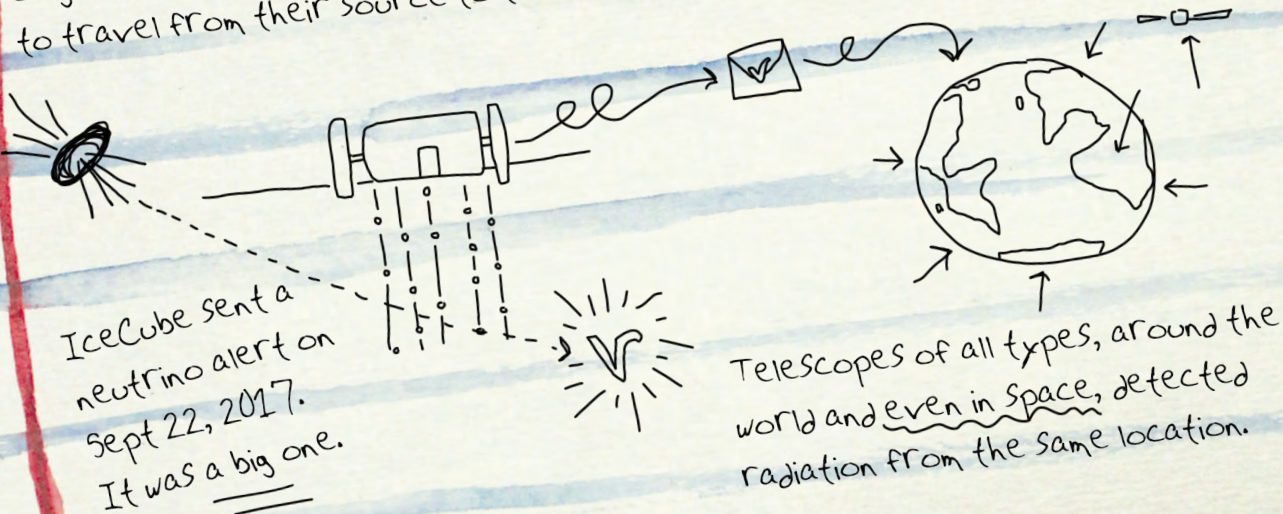 to travel from their source
IceCube sent a
neutrino alert on
Sept 22, 2017.
It was a big one.
Telescopes of all types, around the
world and even in space, detected
radiation from the same location.